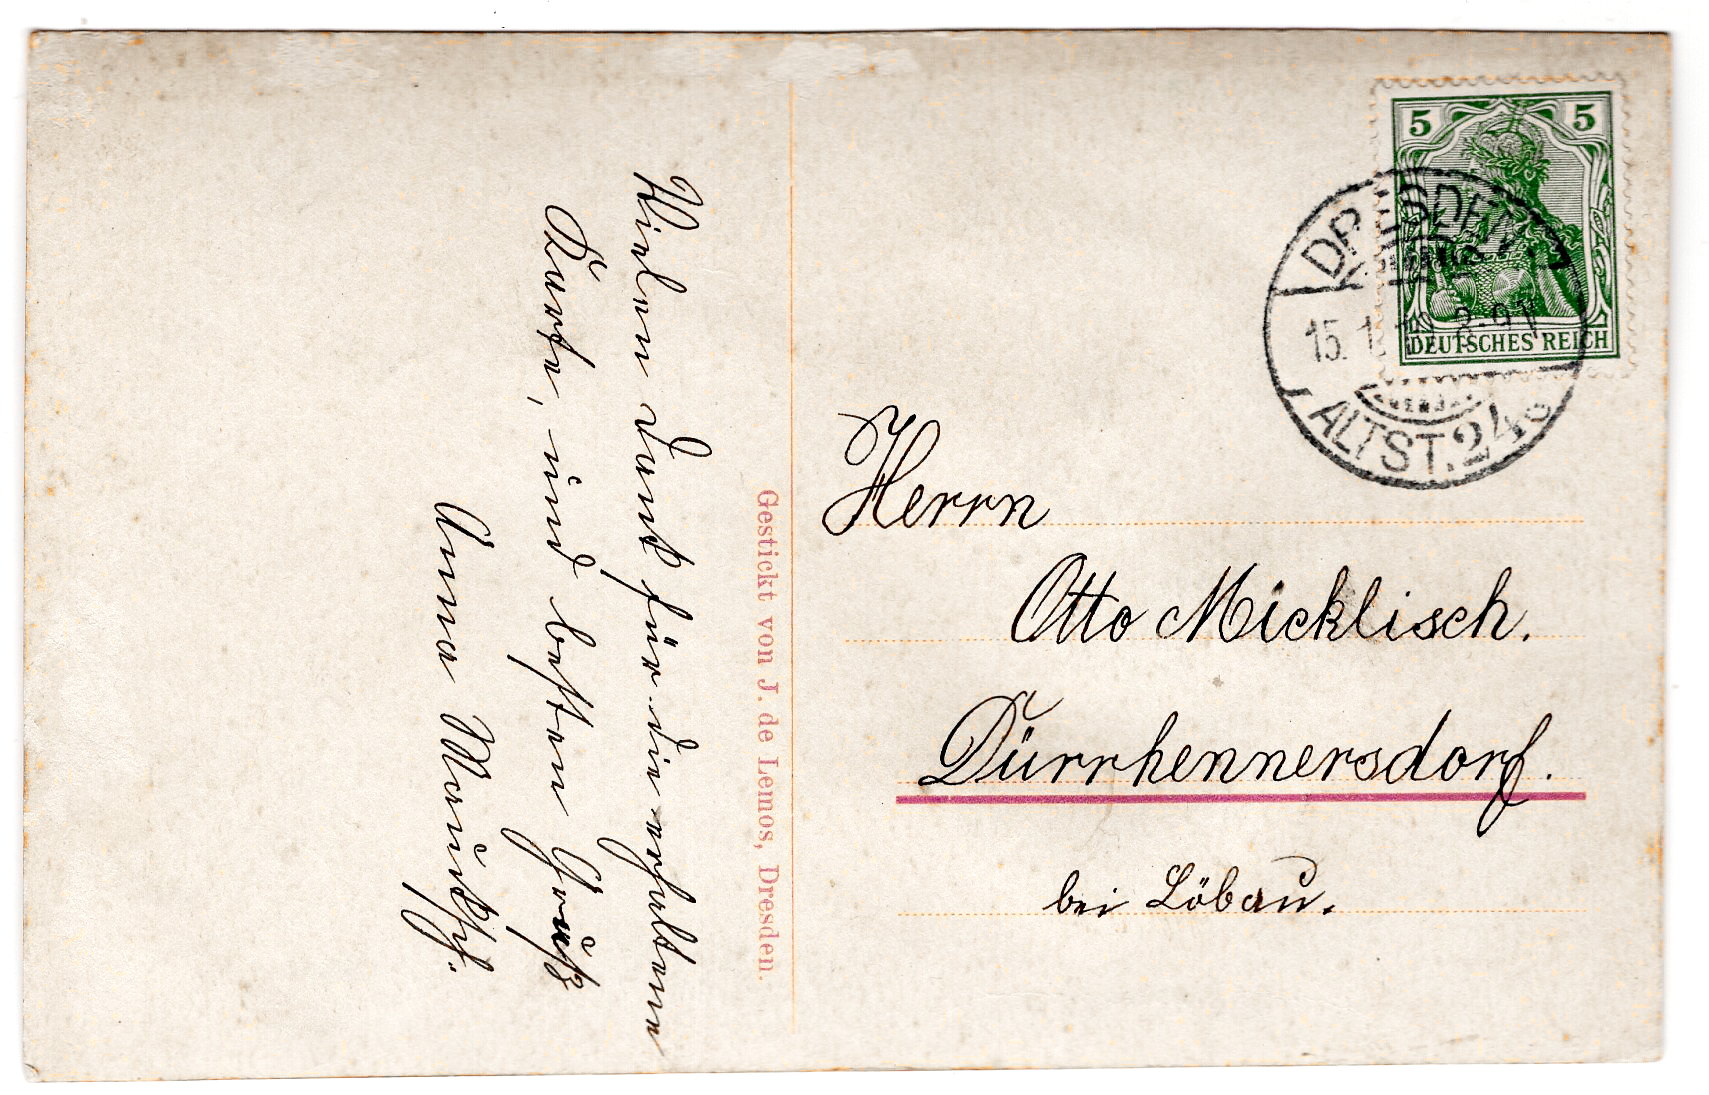 Vielen Dank für die erhaltene
Karte, und besten Gruß
Anna
Gestickt von J. de Lemos, Dresden.
5 5
DEUTSCHES REICH
DRESDEN
15. 1. 8-9 V
ALTST. 24
Herrn
Otto Micklisch.
Dürrhennersdorf.
bei Löbau.